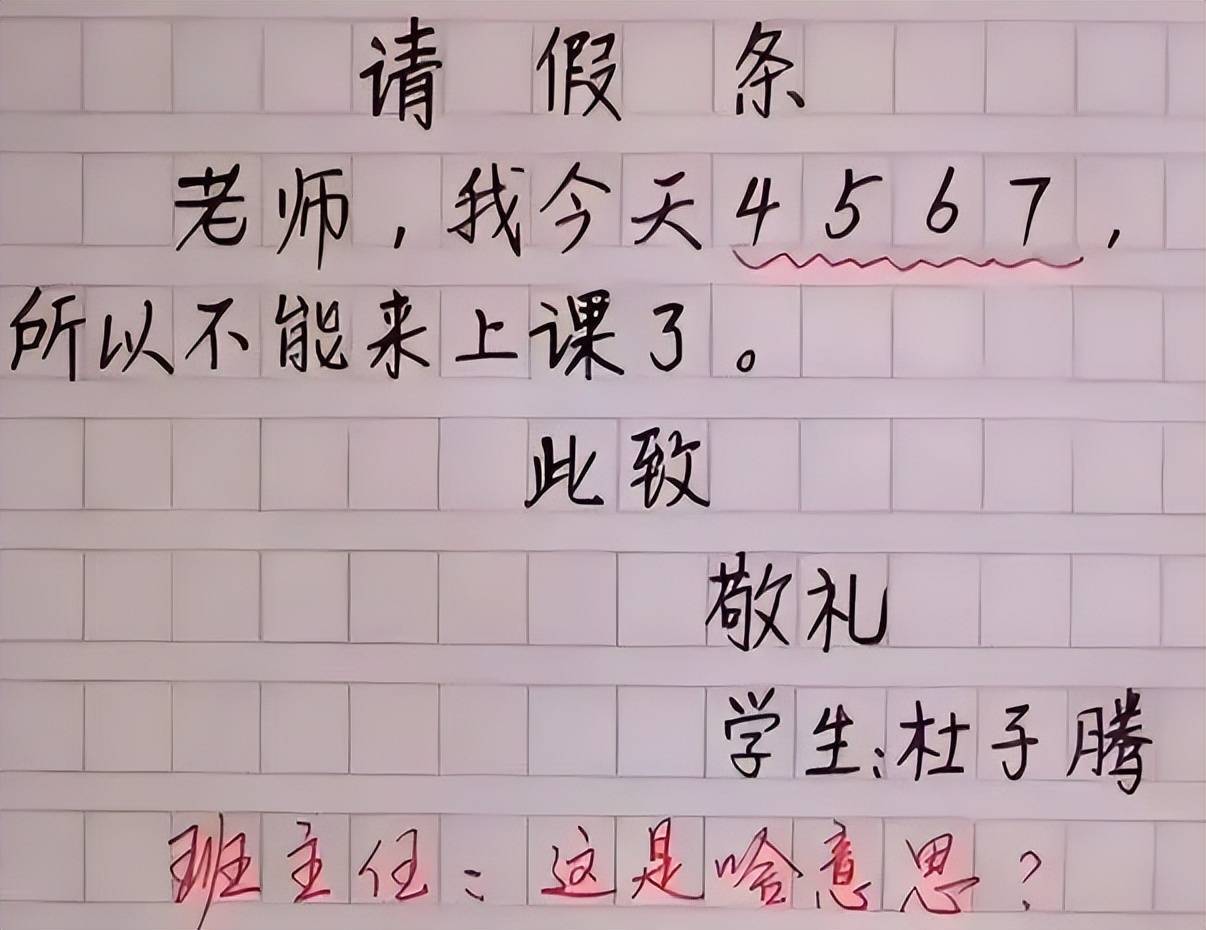 请假条
老师，我今天4567，
所以不能来上课了。
此致
敬礼
学生：杜子腾
班主任：这是啥意思？